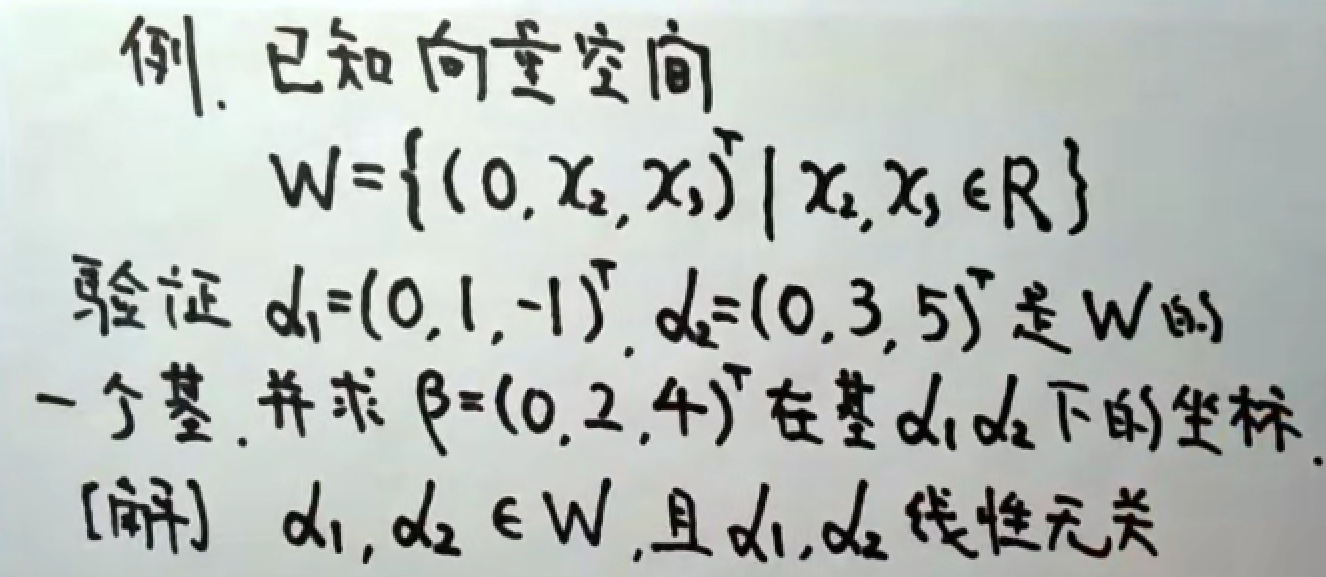 例. 已知向量空间
W={(0, x₂, x₃)ᵀ | x₂, x₃ ∈R}
验证 α₁=(0, 1, -1)ᵀ, α₂=(0, 3, 5)ᵀ 是W的
一个基. 并求 β=(0, 2, 4)ᵀ 在基 α₁ α₂ 下的坐标.
[解] α₁, α₂ ∈ W, 且 α₁, α₂ 线性无关